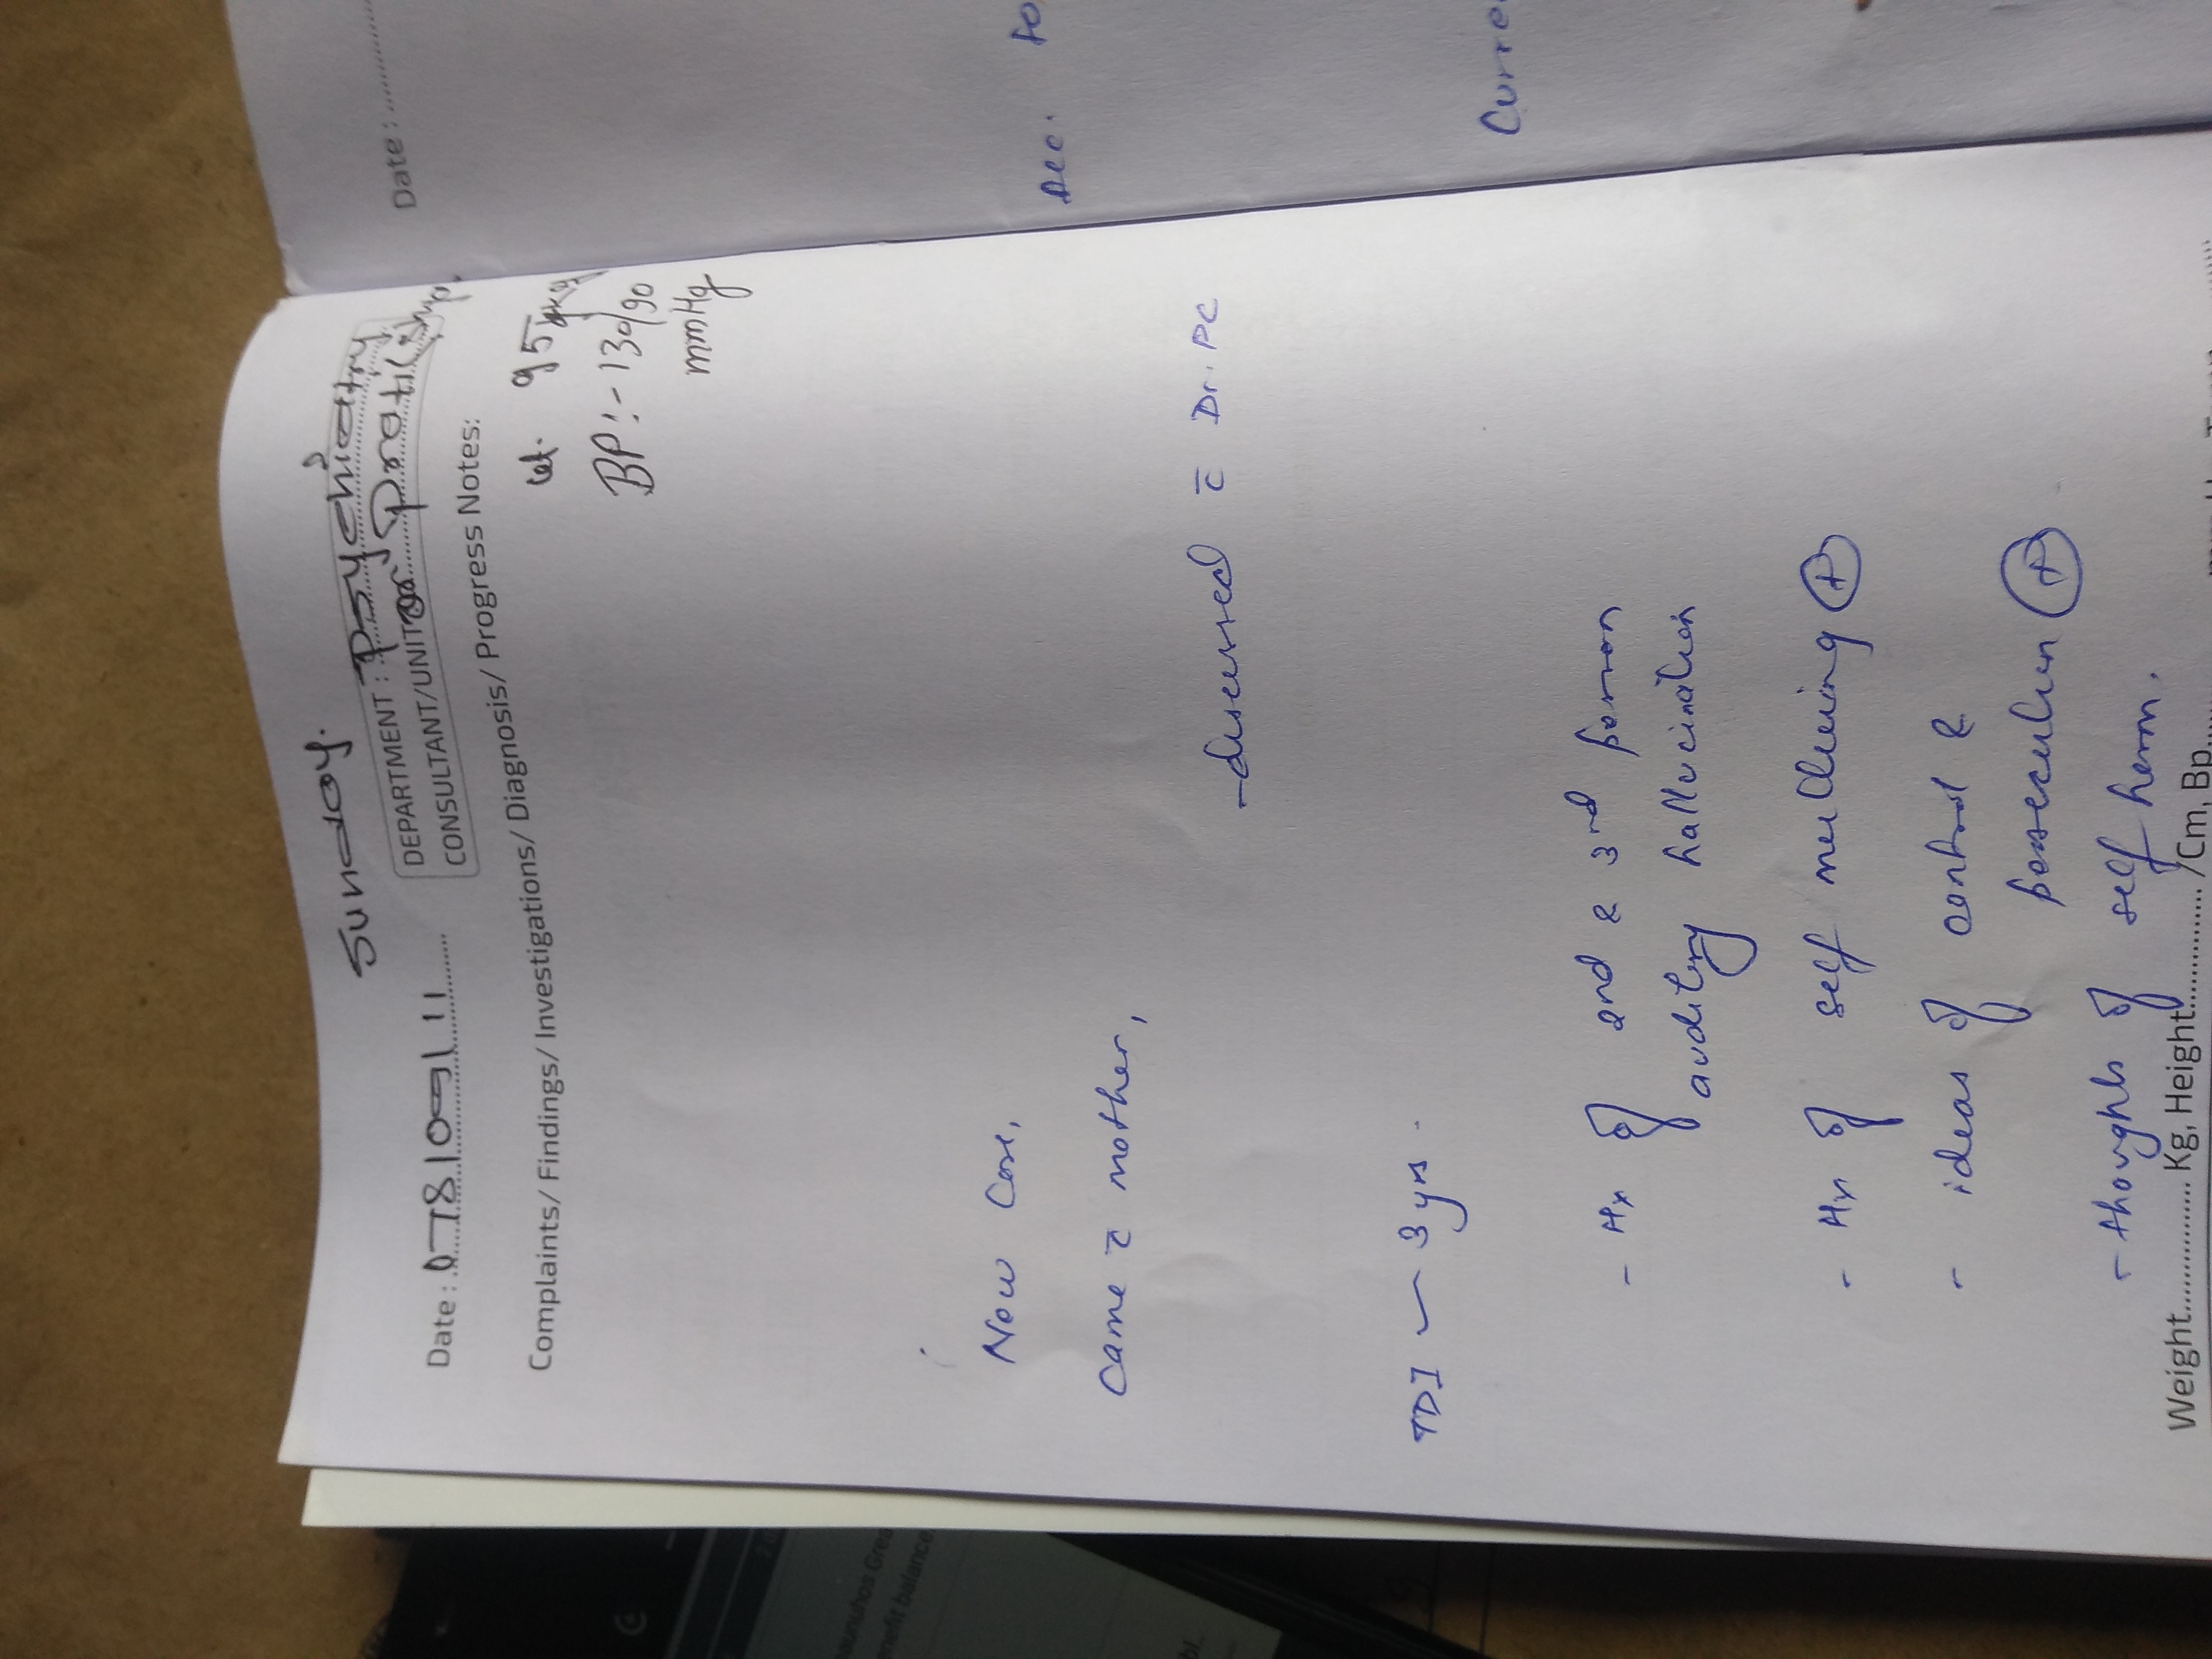 Sunday.
DEPARTMENT : Psychiatry
Date :
CONSULTANT/UNIT
Complaints/ Findings/ Investigations/ Diagnosis/ Progress Notes:
wt. 95 kg
BP:- 130/90
mmHg
New Case,
Came c̄ mother,
- discussed c̄ Dr. PC
TDI ~ 3 yrs.
- Hx of 2nd & 3rd person
auditory hallucination
- Hx of self muttering (+)
- ideas of control &
persecution (+)
- thoughts of self harm.
Weight............. Kg, Height............. /Cm, Bp
Date :
Acc. to
Curre
benefit balance